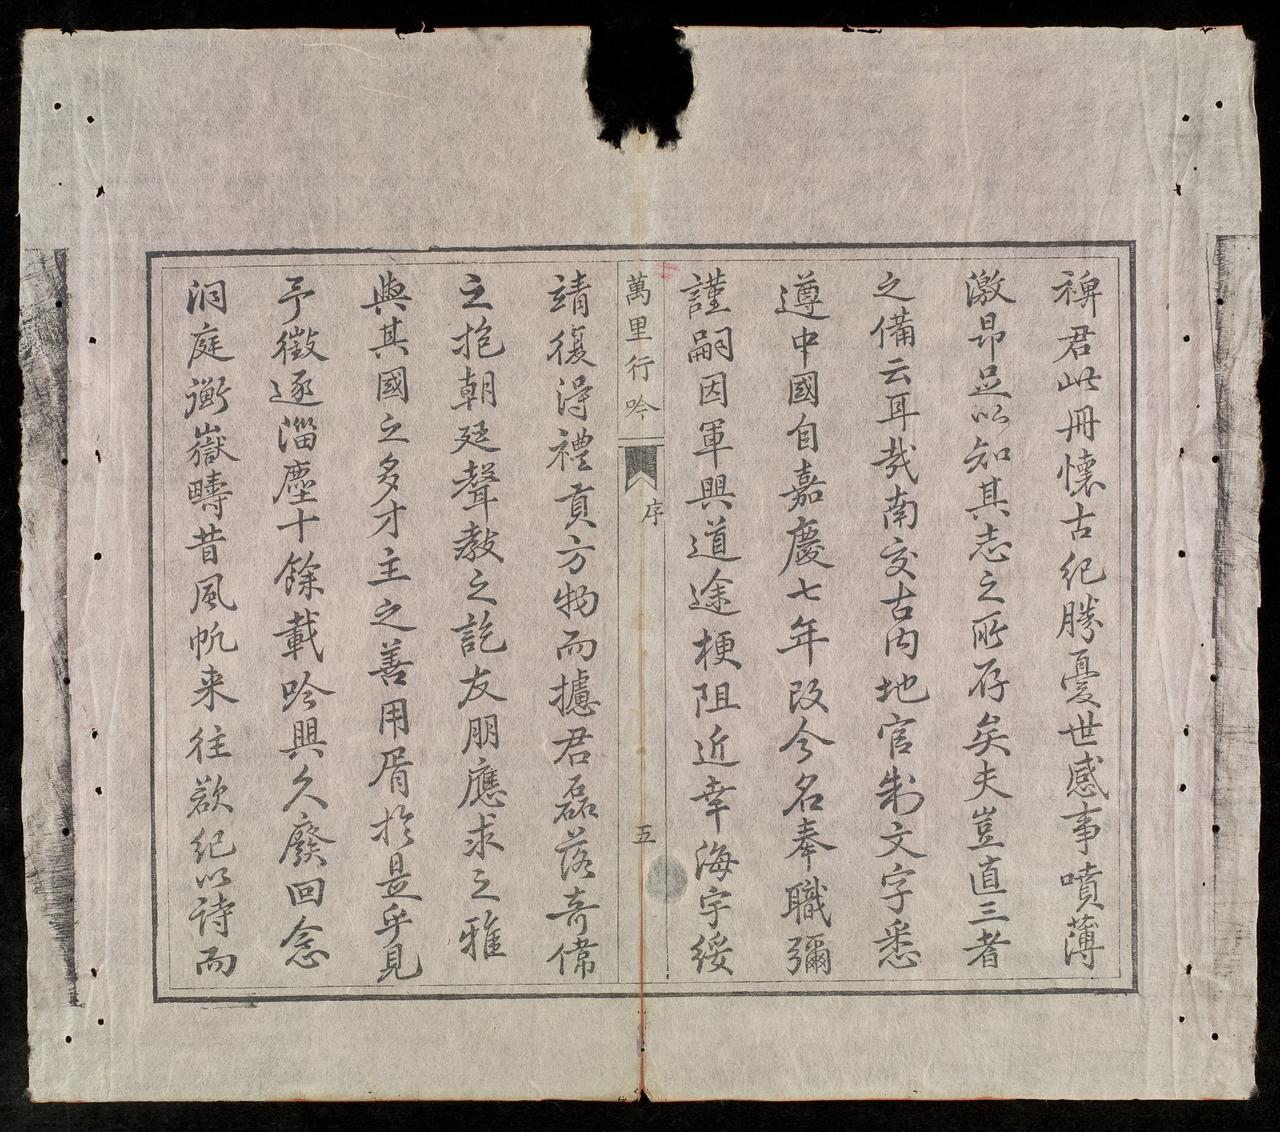 裨君此冊懷古紀勝憂世感事噴薄
激昂足以知其志之所存矣夫豈直三者
之備云耳哉南交古內地官制文字悉
遵中國自嘉慶七年改今名奉職彌
謹嗣因軍興道途梗阻近幸海宇綏
萬里行吟
序
五
靖復得禮貢方物而攄君磊落奇偉
之抱朝廷聲教之訖友朋應求之雅
與其國之多才主之善用胥於是乎見
予徵逐淄塵十餘載吟興久廢回念
洞庭衡嶽疇昔風帆来往欲紀以詩而